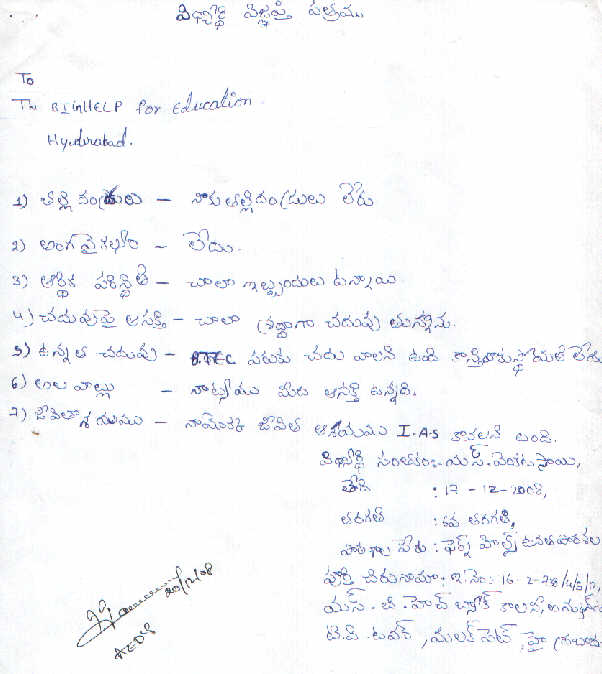 విద్యార్థి విజ్ఞప్తి పత్రము..
To
The BIGHELP for Education.
Hyderabad.
1) తల్లి దండ్రులు - నాకు తల్లిదండ్రులు లేరు
2) అంగవైకల్యం - లేదు.
3) ఆర్థిక పరిస్థితి - చాలా ఇబ్బందులు ఉన్నాయి.
4) చదువుపై ఆసక్తి - చాలా శ్రద్ధాగా చదువు తున్నాను.
5) ఉన్నత చదువు - వరకు చదు వాలని ఉంది. లేదు
6) అల వాట్లు - నాట్యము మీద ఆసక్తి ఉన్నది.
7) జీవితాశయము - నాయొక్క జీవిత ఆశయము I.A.S కావాలని ఉంది.
విద్యార్థి సంతకం:- యస్. వెంకట సాయి,
తేది : 17-12-2008,
తరగతి : తరగతి,
పాఠశాల పేరు : ఉన్నతపాఠశాల
పూర్తి చిరునామా: ఇ.నెం: 16-2-
యస్. బి. హెచ్ బ్లాక్ కాలని,
టి.వి. టవర్, మలక్ పేట్, హైద్రాబాదు
20/12/08